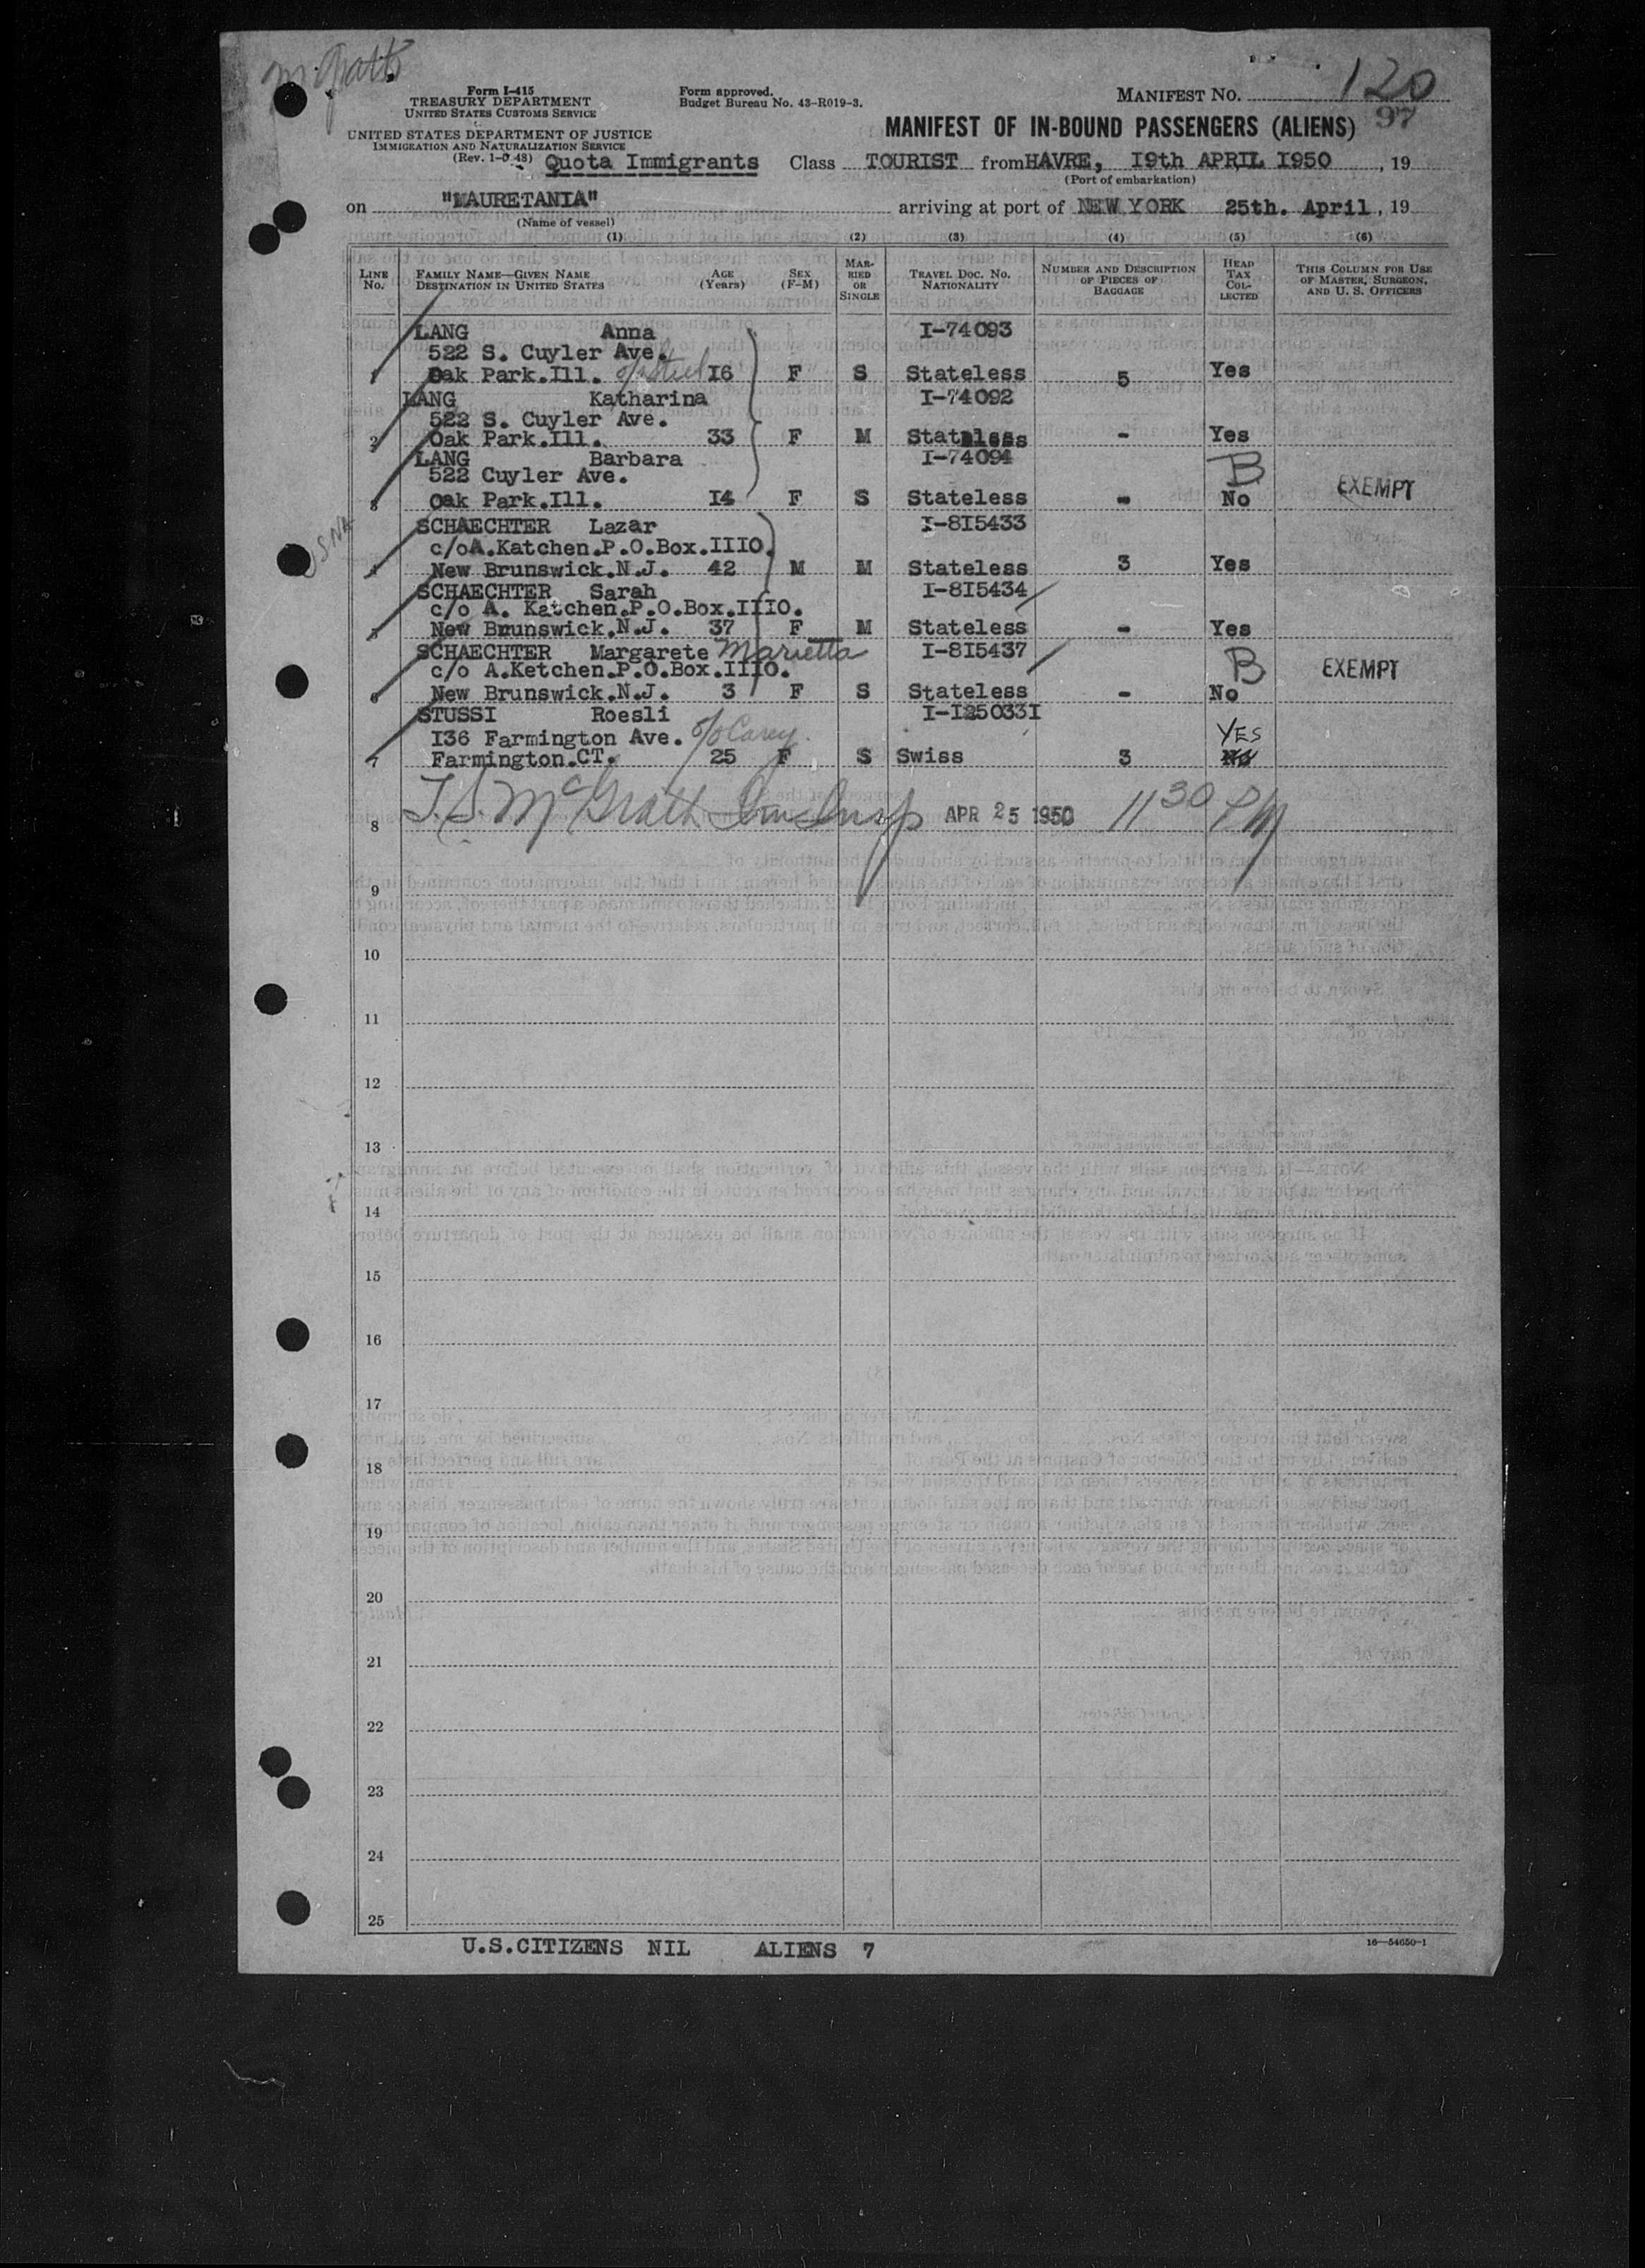 McGrath
Form I-415
TREASURY DEPARTMENT
UNITED STATES CUSTOMS SERVICE
UNITED STATES DEPARTMENT OF JUSTICE
IMMIGRATION AND NATURALIZATION SERVICE
Form approved.
Budget Bureau No. 43-R019-3.
MANIFEST NO. 120
97
MANIFEST OF IN-BOUND PASSENGERS (ALIENS)
Quota Immigrants Class TOURIST from HAVRE, I9th APRIL I950, 19
(Port of embarkation)
on "MAURETANIA" arriving at port of NEW YORK 25th. April, 19
(Name of vessel)
(1) (2) (3) (4) (5) (6)
LINE No. FAMILY NAME—GIVEN NAME DESTINATION IN UNITED STATES AGE (Years) SEX (F-M) MARRIED OR SINGLE TRAVEL DOC. NO. NATIONALITY NUMBER AND DESCRIPTION OF PIECES OF BAGGAGE HEAD TAX COLLECTED THIS COLUMN FOR USE OF MASTER, SURGEON, AND U. S. OFFICERS
LANG Anna I-74093
522 S. Cuyler Ave.
1 Oak Park.Ill. I6 F S Stateless 5 Yes
LANG Katharina I-74092
522 S. Cuyler Ave.
2 Oak Park.Ill. 33 F M Stateless - Yes
LANG Barbara I-74094
522 Cuyler Ave. B
3 Oak Park.Ill. I4 F S Stateless - No EXEMPT
SCHAECHTER Lazar I-8I5433
c/oA.Katchen.P.O.Box.IIIO.
4 New Brunswick.N.J. 42 M M Stateless 3 Yes
SCHAECHTER Sarah I-8I5434
c/o A. Katchen.P.O.Box.IIIO.
5 New Brunswick.N.J. 37 F M Stateless - Yes
SCHAECHTER Margarete Marietta I-8I5437
c/o A.Ketchen.P.O.Box.IIIO. B EXEMPT
6 New Brunswick.N.J. 3 F S Stateless - No
STUSSI Roesli I-I25033I
I36 Farmington Ave. c/o Carey. YES
7 Farmington.CT. 25 F S Swiss 3 No
8 T.S. McGrath Imm Insp APR 25 1950 11 30 PM
9
10
11
12
13
14
15
16
17
18
19
20
21
22
23
24
25
U.S.CITIZENS NIL ALIENS 7
16—54650-1